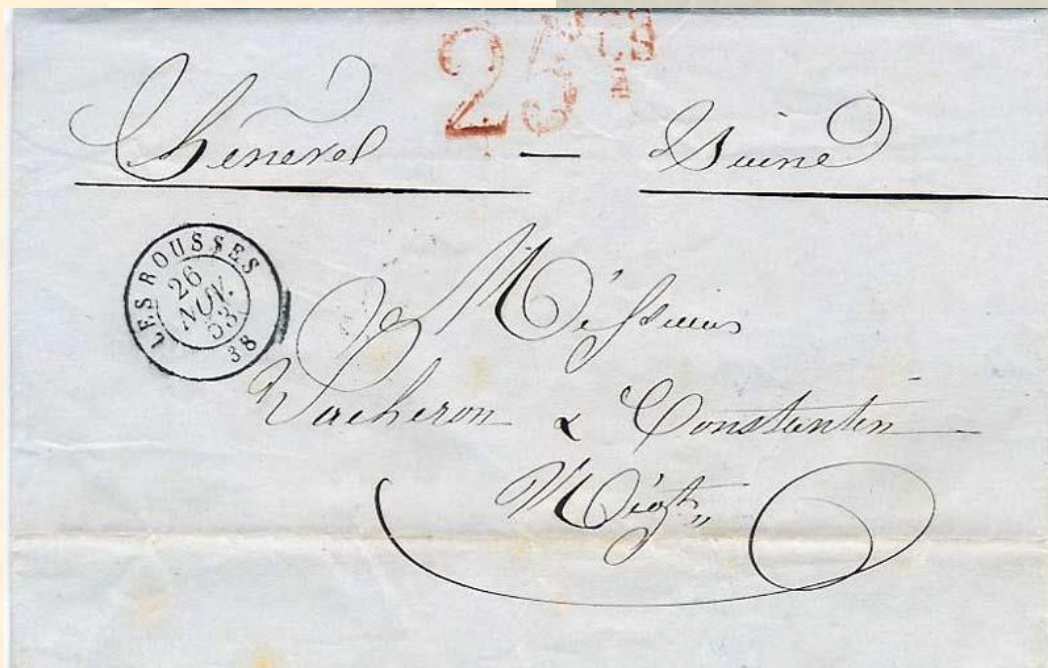 25 CTS
Genève — Suisse
LES ROUSSES
26
NOV.
53
38
Messieurs
Vacheron & Constantin